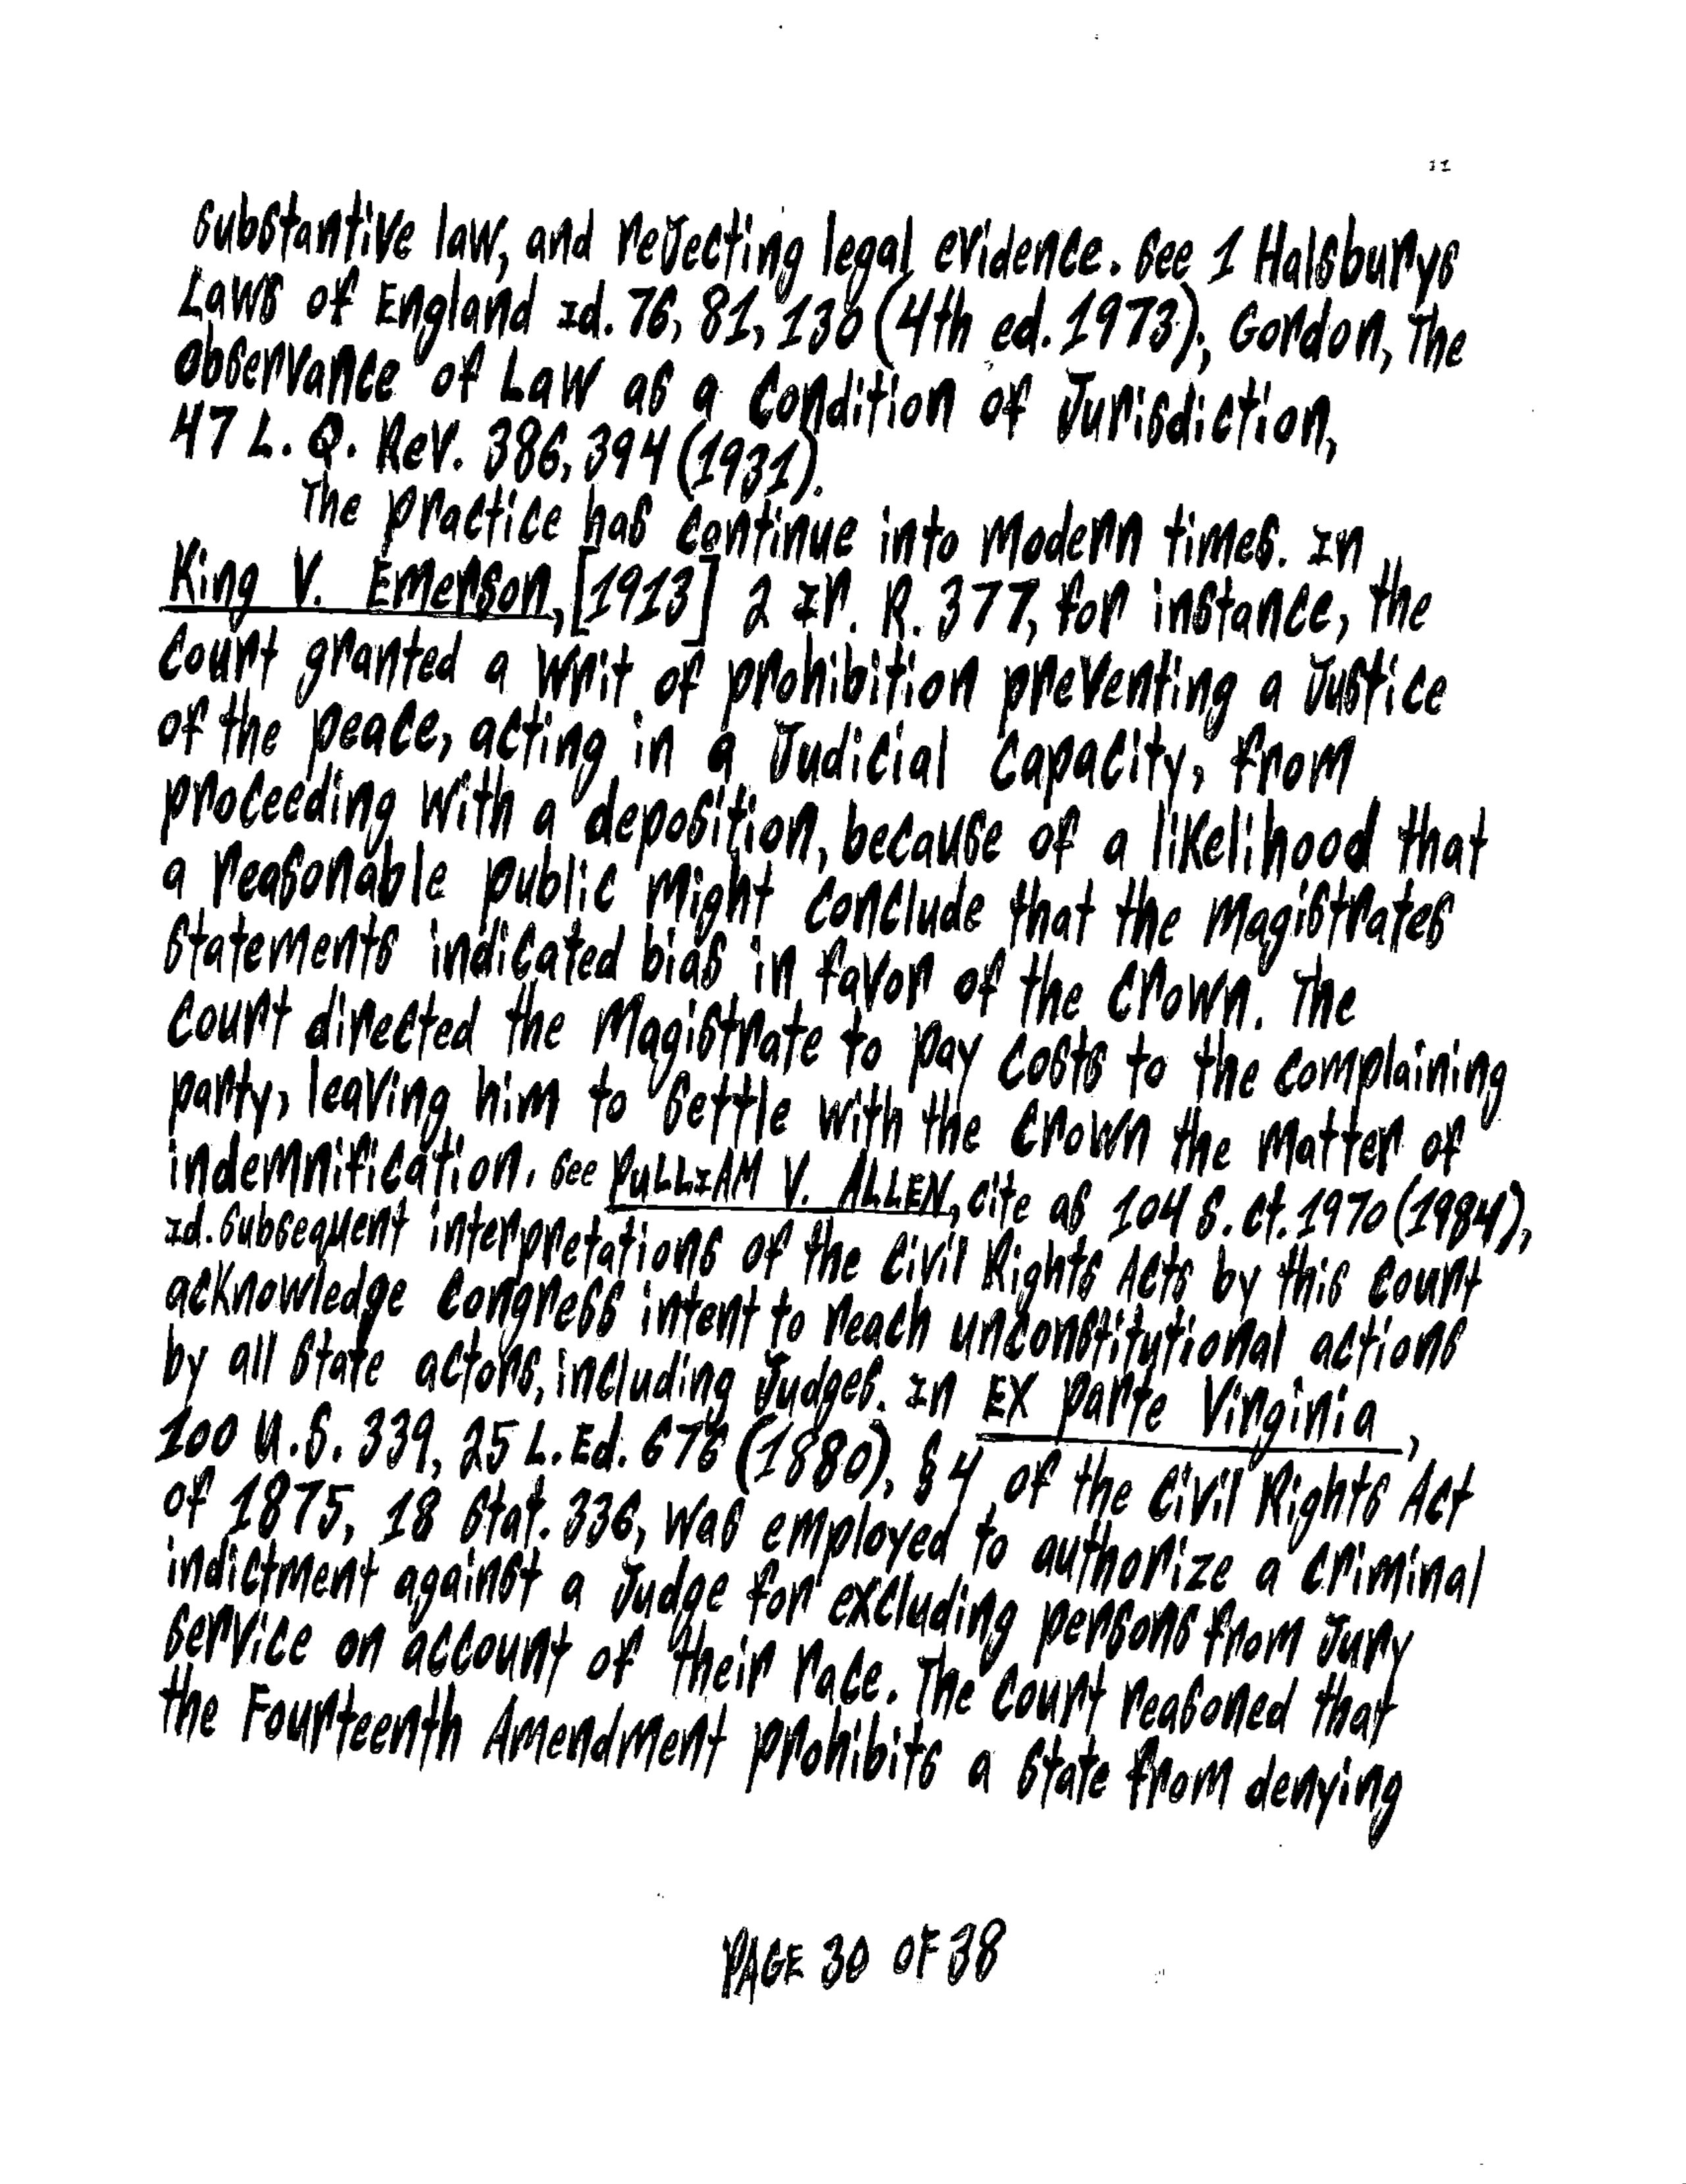 substantive law, and rejecting legal evidence. See 1 Halsburys
Laws of England Id. 76, 81, 130 (4th ed. 1973); Gordon, The
observance of Law as a Condition of Jurisdiction,
47 L. Q. Rev. 386, 394 (1931).
The practice has continue into modern times. In
King V. Emerson, [1913] 2 Ir. R. 377, for instance, the
court granted a writ of prohibition preventing a Justice
of the peace, acting in a Judicial capacity, from
proceeding with a deposition, because of a likelihood that
a reasonable public might conclude that the magistrates
statements indicated bias in favor of the crown. The
court directed the magistrate to pay costs to the complaining
party, leaving him to settle with the crown the matter of
indemnification. See PULLIAM V. ALLEN, cite as 104 S. Ct. 1970 (1984),
Id. Subsequent interpretations of the Civil Rights Acts by this court
acknowledge Congress intent to reach unconstitutional actions
by all state actors, including Judges. In EX parte Virginia,
100 U.S. 339, 25 L. Ed. 676 (1880), § 4 of the Civil Rights Act
of 1875, 18 Stat. 336, was employed to authorize a criminal
indictment against a Judge for excluding persons from Jury
service on account of their race. The court reasoned that
the Fourteenth Amendment prohibits a state from denying
PAGE 30 OF 38